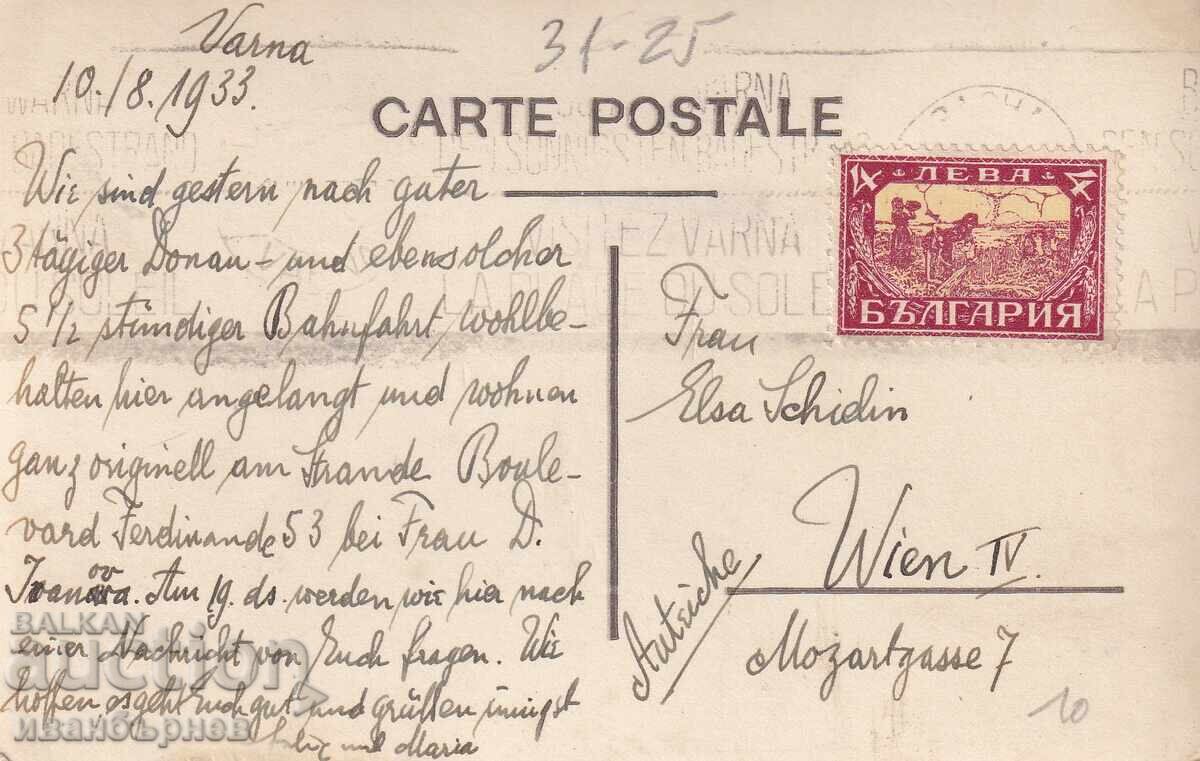 Varna
10./8.1933.
31-25
CARTE POSTALE
Wir sind gestern nach guter
3 tägiger Donau- und ebensolcher
5 1/2 stündiger Bahnfahrt wohlbe-
halten hier angelangt und wohnen
ganz originell am Strande Boule-
vard Ferdinande 53 bei Frau D.
Ivanova. Am 19. ds. werden wir hier nach
einer Nachricht von Euch fragen. Wir
hoffen es geht Euch gut und grüßen innigst
und Maria
4 ЛЕВА 4
БЪЛГАРИЯ
Frau
Elsa Schidin
Wien IV.
Mozartgasse 7
Autriche
10
WARNA
BADESTRAND
VARNA
DEN SONNIGSTEN BADESTR
VISITEZ VARNA
LA PLAGE DU SOLEIL
BALKAN
auction
иванбърнев